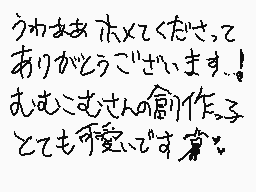 うわぁぁ ホメてくださって
ありがとうございます…!
むむこむさんの創作っ子
とても可愛いです